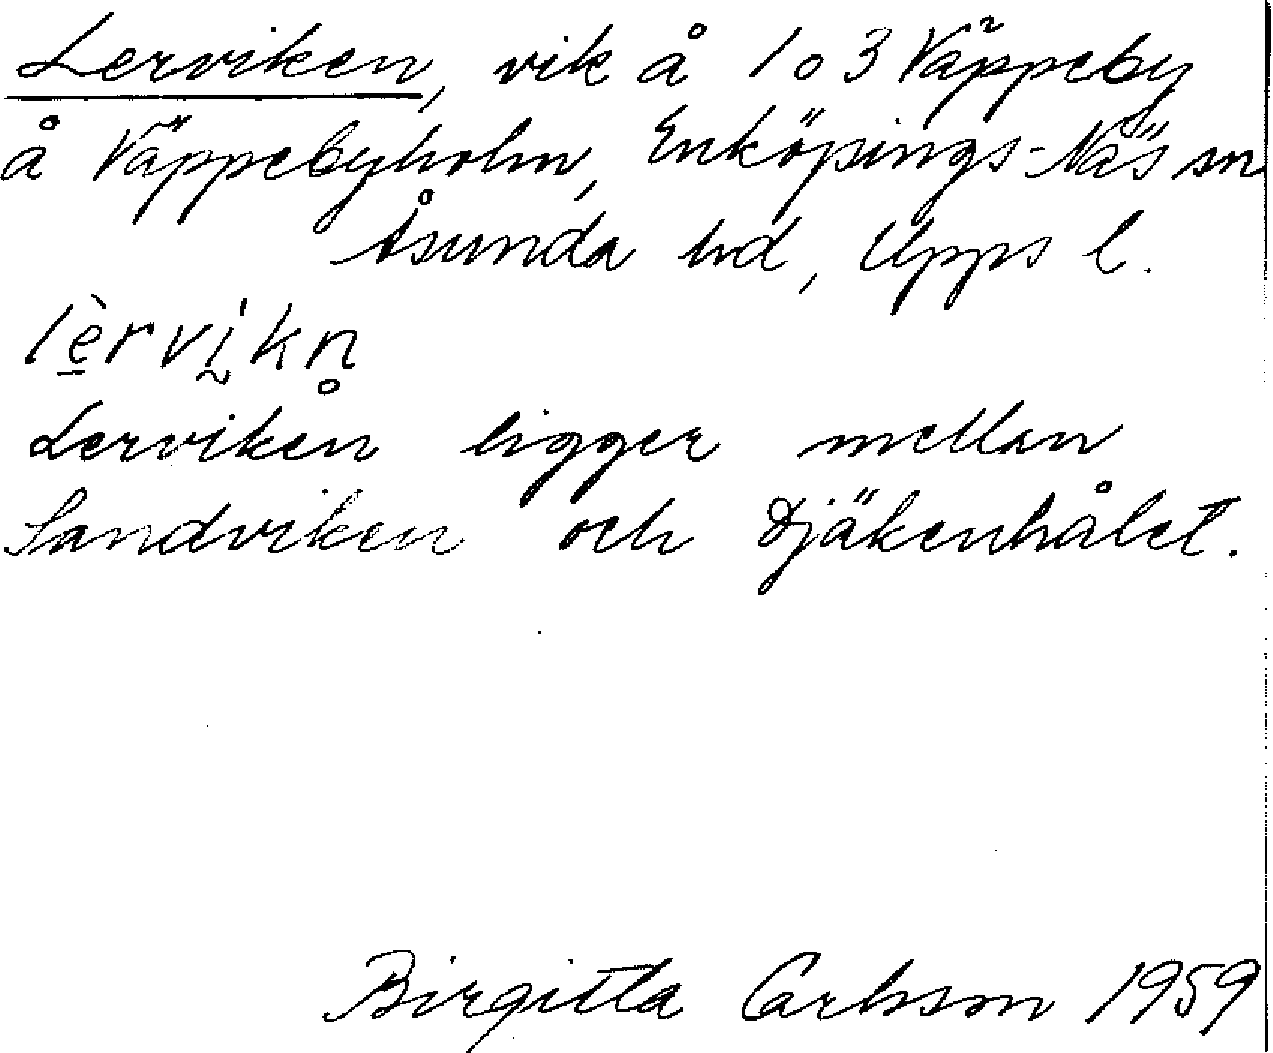 Lerviken, vik å 1 o 3 Väppeby
å Väppebyholm, Enköpings-Näs sn
Åsunda hd, Upps l.
lè̠rvḭkn̥
Lerviken ligger mellan
Sandviken och Djäkenhålet.
Birgitta Carlsson 1959